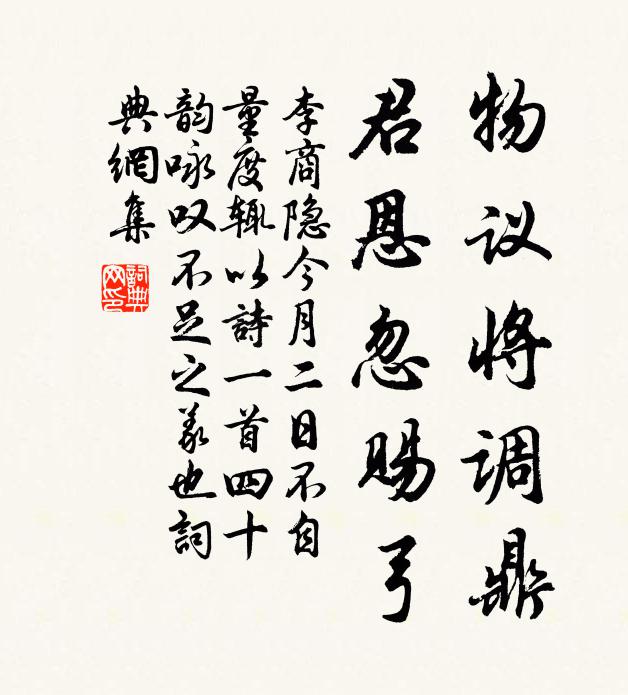 物议将调鼎
君恩忽赐弓
李商隐今月二日不自
量度辄以詩一首四十
韵咏叹不足之义也詞
典網集
詞典
网印